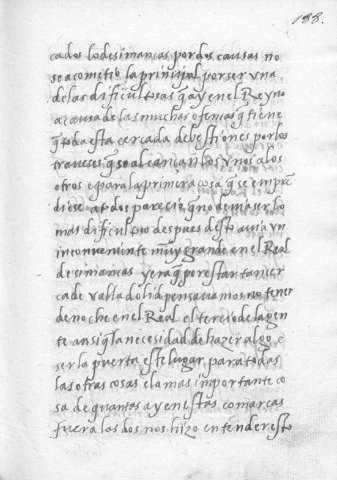 188.
cados lo de simancas por dos causas no
se acometio la principal por ser vna
de las dificultosas q̃ ay en el Reyno
a causa de las muchas ofensas q̃ tiene
q̃ toda esta cercada de bestiones por los
traueses q̃ se alcançan los vnos a los
otros e para la primera cosa q̃ se empre
diese a todos parecio q̃ no deuia ser lo
mas dificultoso despues desto auia vn
inconueniente muy grande en el Real
de simancas y era q̃ por estar tan cer
ca de valladolid pensauamos no tener
de noche en el Real el tercio de la gen
te ansi q̃ la necesidad de hazer algo e
ser la puerta este lugar para todas
las otras cosas e lo mas importante co
sa de quantas ay en estas comarcas
fuera los dos nos hizo entender esto